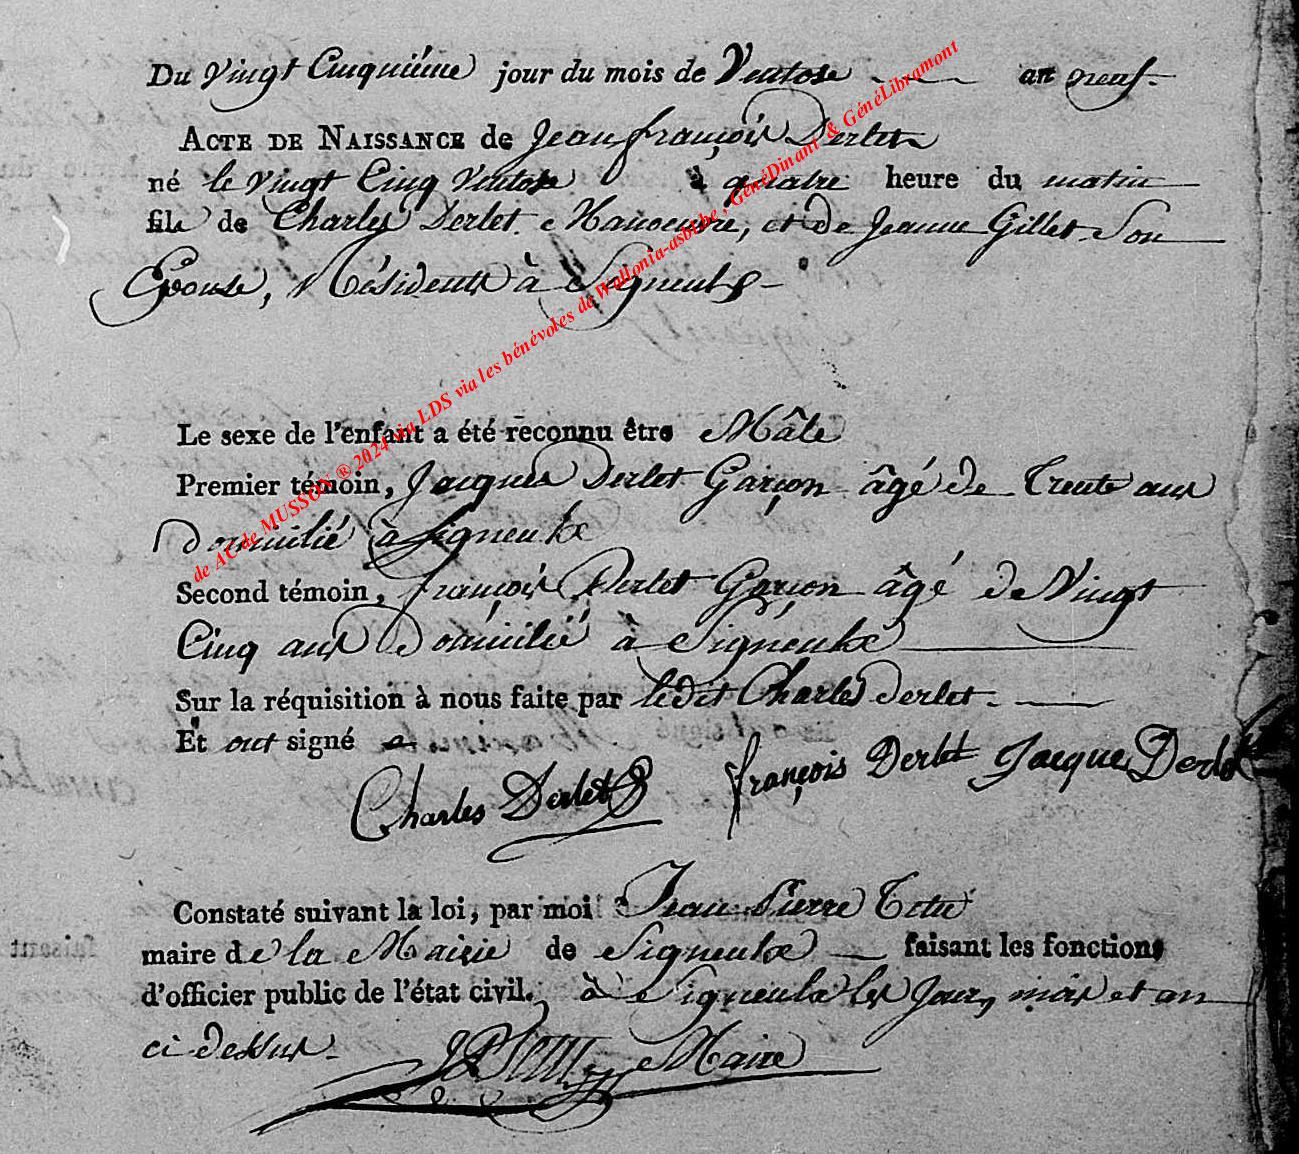 Du Vingt Cinquiéme jour du mois de Ventose an neuf.
ACTE DE NAISSANCE de Jean françois Derlet
né le vingt Cinq Ventose à quatre heure du matin
fils de Charles Derlet Manoeuvre, et de Jeanne Gillet Son
Epouse, Résidents à Signeulx
Le sexe de l'enfant a été reconnu être Mâle
Premier témoin, Jacques Derlet Garçon âgé de Trente ans
Domicilié à Signeulx
Second témoin, françois Derlet Garçon âgé de Vingt
Cinq ans Domicilié à Signeulx
Sur la réquisition à nous faite par ledit Charles Derlet
Et ont signé
Charles Derlet françois Derlet Jacque Derlet
Constaté suivant la loi, par moi Jean Pierre
maire de la Mairie de Signeulx faisant les fonctions
d'officier public de l'état civil. à Signeulx les Jour, mois et an
ci dessus
Maire
de AC de MUSSON ® 2024 via LDS via les bénévoles de Wallonia-asbl.be , GénéDinant & GénéLibramont